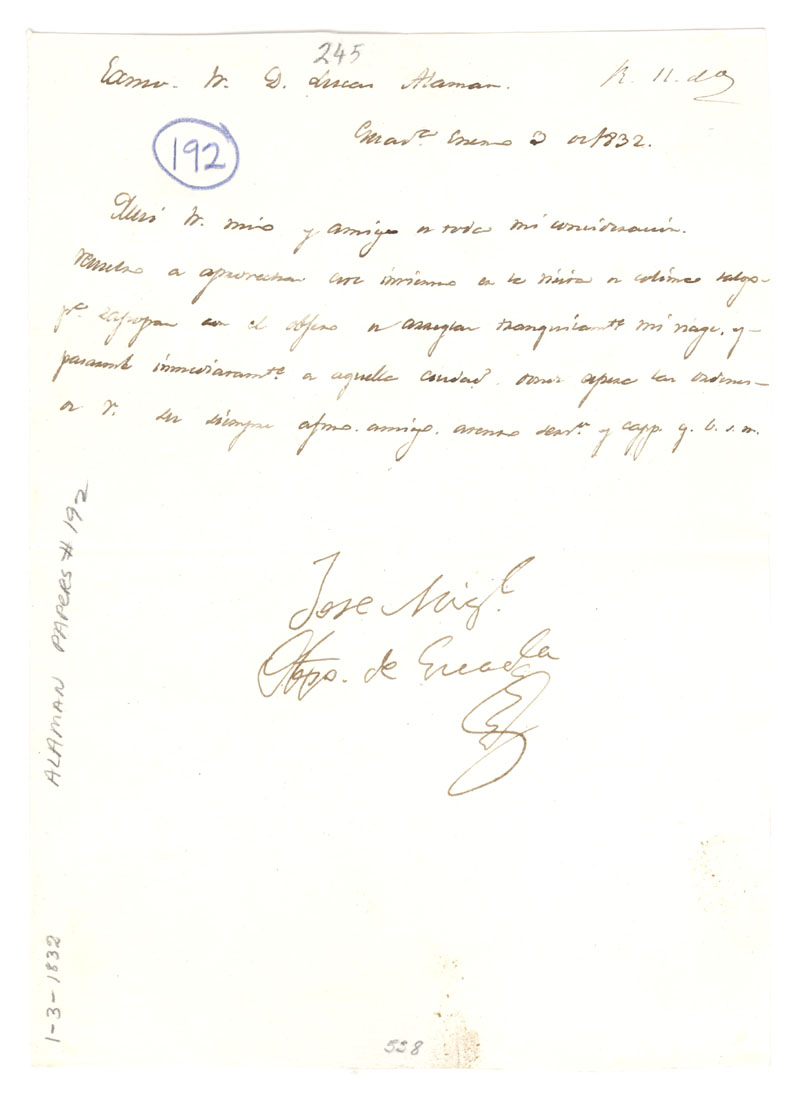 245
Exmo. Sr. D. Lucas Alaman. R. 11. do
Guadª. Enero 3 de 1832.
192
Muy Sr. mio y amigo de toda mi consideracion.
resuelto a aprovechar este invierno en la visita de colima salgo
pª. Zapopan con el objeto de arreglar tranquilamte. mi viage, y
pasarme inmediatamte. a aquella ciudad, donde espera las ordenes
de V. su siempre afmo. amigo. atento servr. y capp. q. b. s. m.
Jose Migl.
Obpo. de Guadla
ALAMAN PAPERS # 192
1-3-1832
538